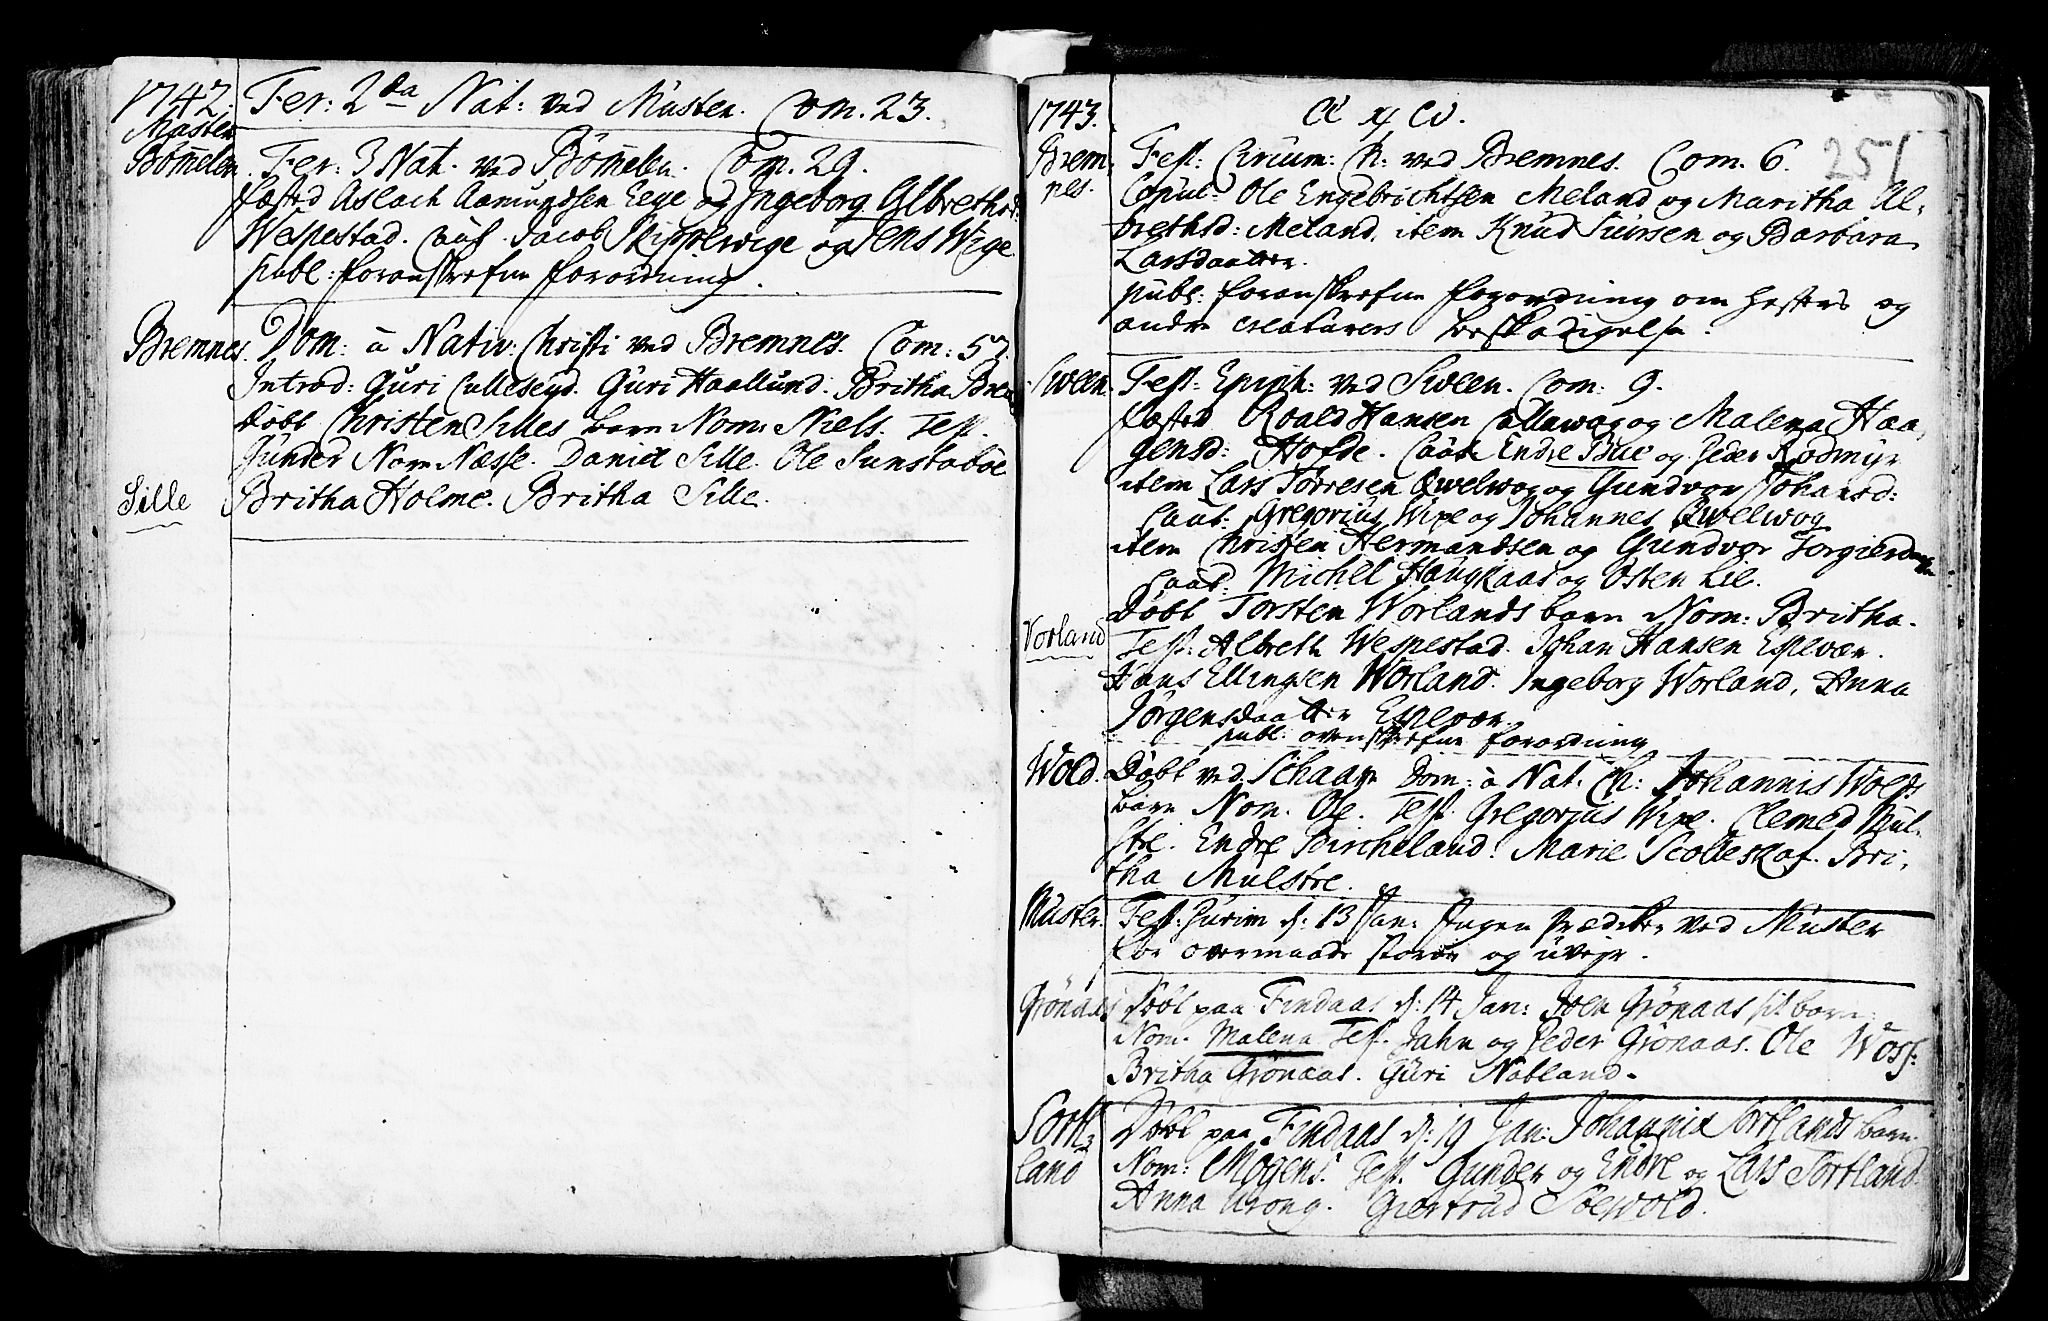 1742.
Fer: 2da Nat: ved Muster. Com. 23.
Muster
Bömelen
Fer: 3 Nat. ved Bömelen. Com. 29.
fæsted Aslach Aamundsen Eege og Ingeborg Albrethsd:
Wespestad. Caut Jacob Skippewige og Jens Wige
publ: foranskrefne forordning.
Bremnes.
Dom: à Nativ: Christi ved Bremnes. Com: 57.
Introd: Guri Calleseyd. Guri Haallund. Britha Brem
Döbt Christen Silles barn Nom: Niels. Test.
Gunder Nom Næsse. Daniel Sille. Ole Sunstaböe
Sille
Britha Holme. Britha Sille.
1743.
251
Brem-
nes.
Fest: Circum: Ch: ved Bremnes. Com. 6.
Copul: Ole Engebrichtsen Meland og Maritha Al-
brethsd: Meland. item Knud Siursen og Barbara
Larsdaatter.
publ: foranskrefne forordning om hesters og
andre creaturers beskadigelse.
Sween.
Fest: Epiph: ved Sween. Com: 9.
fæsted Roald Hansen Callawaag og Malena Haa-
gensd: Hofde. Caut Endre Bue og Peder Rödmyr
item Lars Torresen Qwelwog og Gundvor Johansd:
Caut: Gregorius Wixe og Johannes Qwelwog
item Christen Hermandsen og Gundvor Torgiersdaatter
Caut: Michel Haugkaas og Osten Lie.
Döbt Torsten Worlands barn Nom: Britha.
Vorland
Test: Albreth Wespestad. Johan Hansen Espevær.
Hans Ellingsen Worland. Ingeborg Worland, Anna
Jörgensdaatter Espevær.
publ: ovenskrefne forordning
Wold.
Döbt ved Schaare Dom: à Nat: Ch: Johannis Wolds
barn Nom. Ole. Test. Gregorius Wixe. Clemed Mul-
stre. Endre Bircheland. Marie Scolleskaf. Bri-
tha Mulstre.
Muster.
Fest: d: 13 Jan: Ingen Prædiken ved Muster
for overmaade storm og uvejr.
Grönaas
Döbt paa Findaas d: 14 Jan: Joen Grönaas sit barn
Nom. Malena Test. Jahn og Peder Grönaas. Ole Woss:
Britha Grönaas. Guri Nabland.
Sort-
land
Döbt paa Findaas d: 19 Jan: Johannis Sortlands barn
Nom: Mogens. Test. Gunder og Endre og Lars Sortland
Anna Urong. Giertrud Söewold.